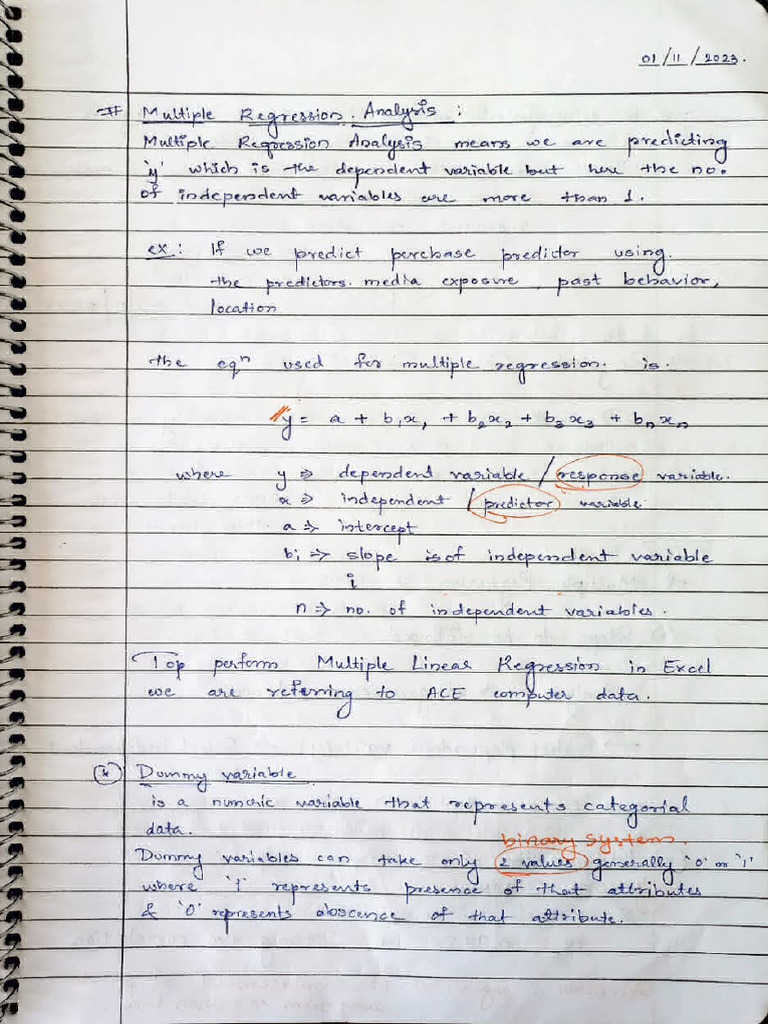 01/11/2023.
# Multiple Regression Analysis :
Multiple Regression Analysis means we are predicting
'y' which is the dependent variable but here the no.
of independent variables are more than 1.
ex: If we predict purchase predictor using
the predictors. media exposure, past behavior,
location
the eqⁿ used for multiple regression. is.
y = a + b₁x₁ + b₂x₂ + b₃x₃ + bₙxₙ
where y ⇒ dependent variable / response variable.
x ⇒ independent / predictor variable
a ⇒ intercept
bi ⇒ slope is of independent variable
i
n ⇒ no. of independent variables.
Top perform Multiple Linear Regression in Excel
we are referring to ACE computer data.
* Dummy variable
is a numeric variable that represents categorial
data.
binary system.
Dummy variables can take only 2 values generally '0' or '1'
where '1' represents presence of that attributes
& '0' represents abscence of that attribute.